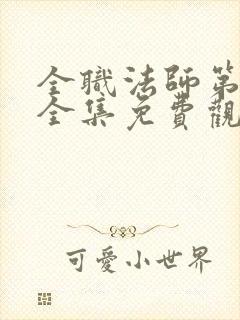 全職法師第
全集免費觀
可愛小世界